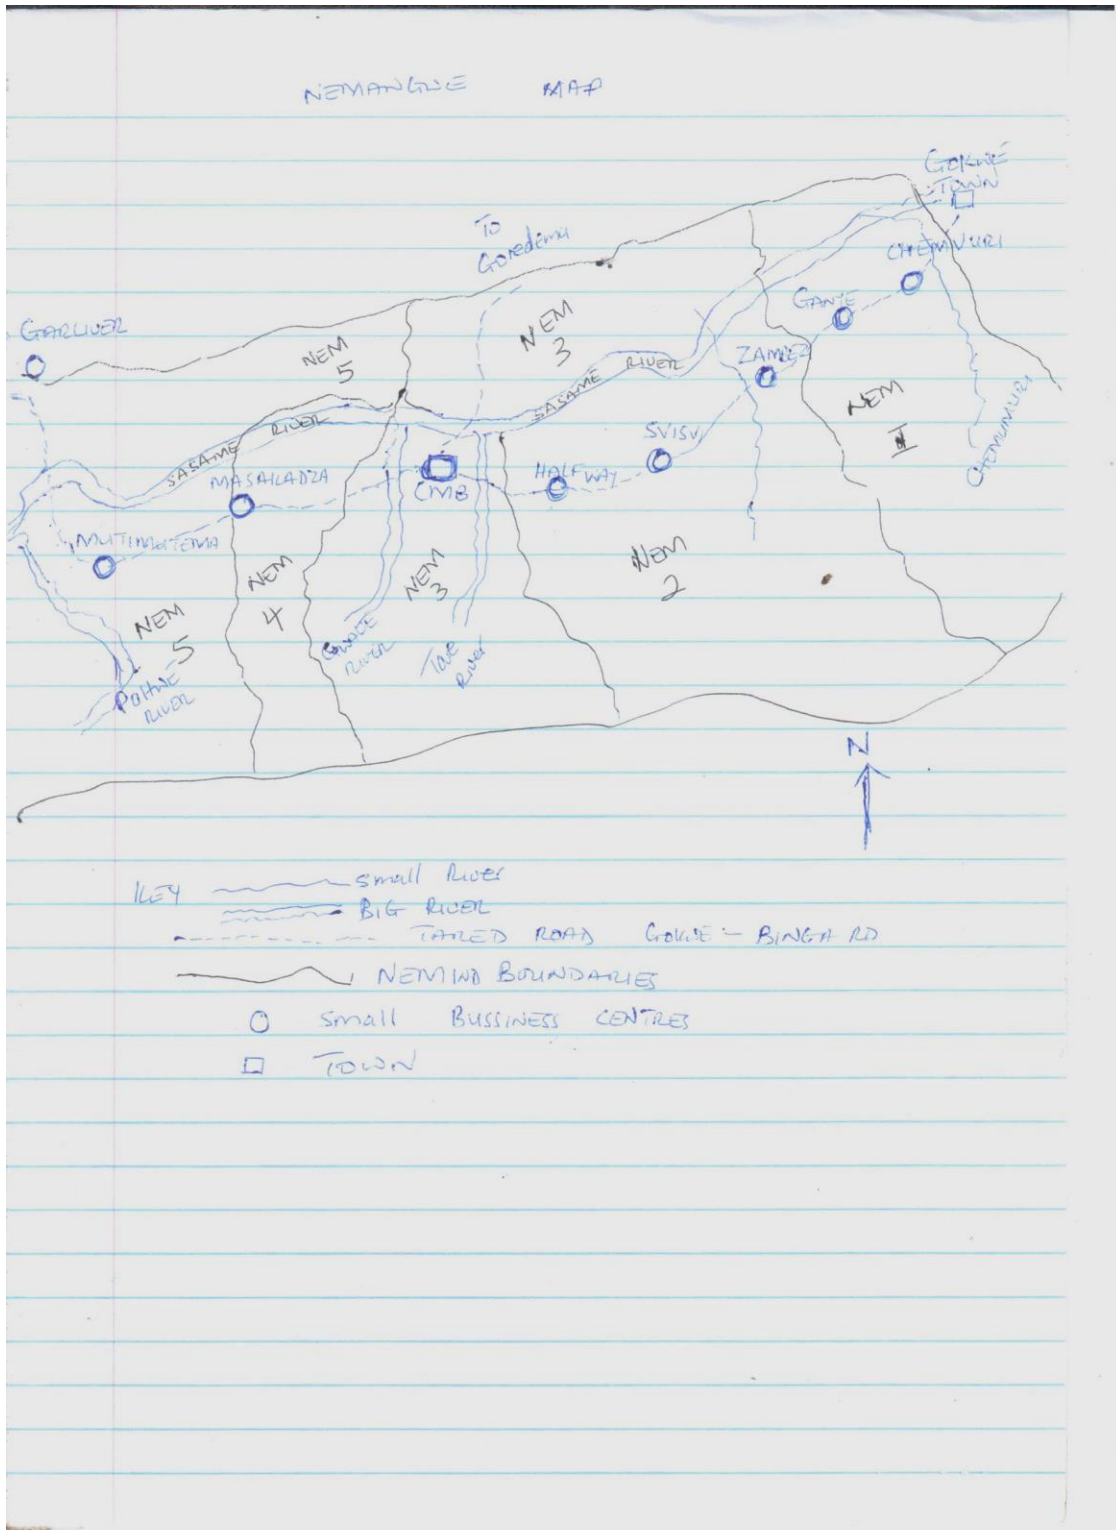 NEMANGWE MAP
GOKWE
TOWN
TO
Goredema
CHEMVURI
GANYE
GARLIVER
NEM
3
NEM
5
SASAME RIVER
ZAMBEZ
NEM
I
SASAME RIVER
SVISVI
MASAKADZA
CMB
HALFWAY
MUTIMUTEMA
NEM
2
NEM
4
NEM
3
NEM
5
RIVER
TOVE
RIVER
POHWE
RIVER
N
KEY
Small RIVER
BIG RIVER
TARED ROAD GOKWE - BINGA RD
BOUNDARIES
Small BUSSINESS CENTRES
TOWN